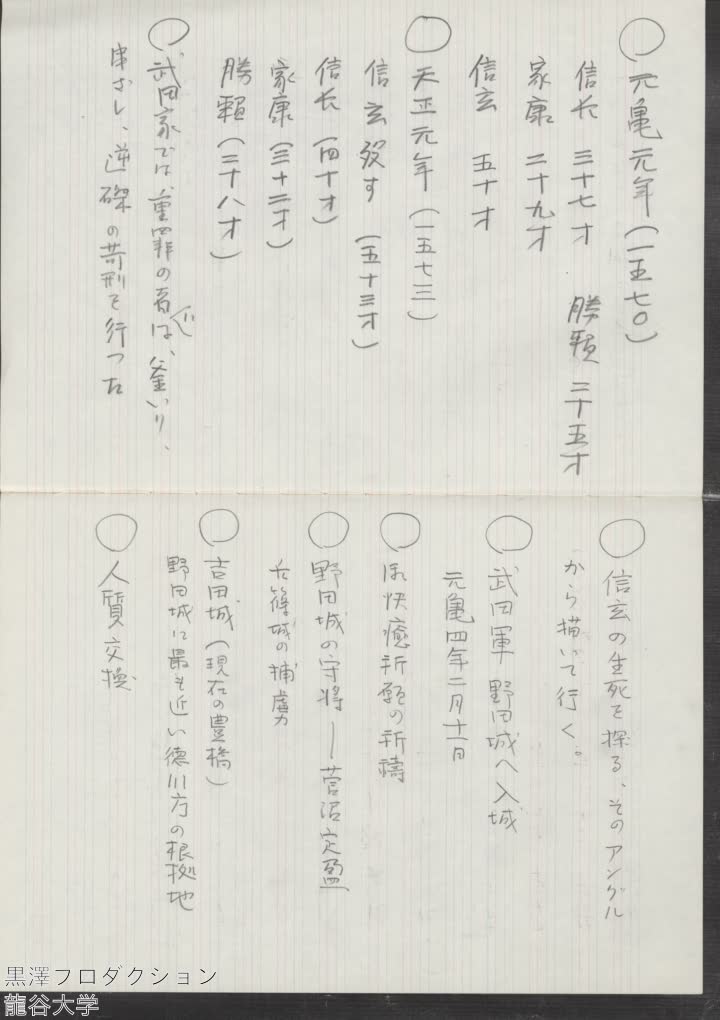 ○ 元亀元年(一五七〇)
信長 三十七才 勝頼 二十五才
家康 二十九才
信玄 五十才
○ 天正元年(一五七三)
信玄歿す(五十三才)
信長(四十才)
家康(三十二才)
勝頼(二十八才)
○ 武田家では、重罪の者は、釜いり、
串ざし、逆磔の苛刑を行った
○ 信玄の生死を探る、そのアングル
から描いて行く。
○ 武田軍 野田城へ入城
元亀四年二月十一日
○ 快癒祈願の祈禱
○ 野田城の守将―菅沼定盈
長篠城の捕虜
○ 吉田城(現在の豊橋)
野田城に最も近い徳川方の根拠地
○ 人質交換
黒澤プロダクション
龍谷大学